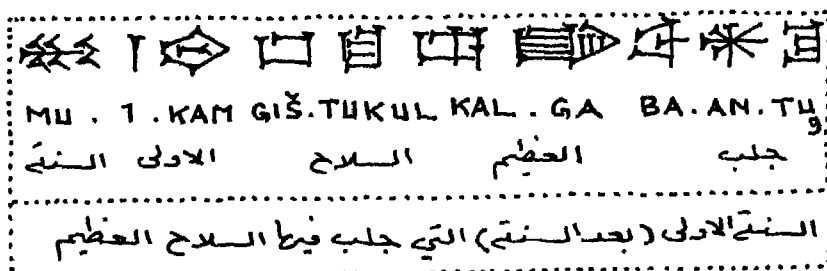 MU . 1 . KAM GIŠ.TUKUL KAL . GA BA.AN.TU₉
السنة الاولى السلاح العظيم جلب
السنة الاولى (بعد السنة) التي جلب فيها السلاح العظيم